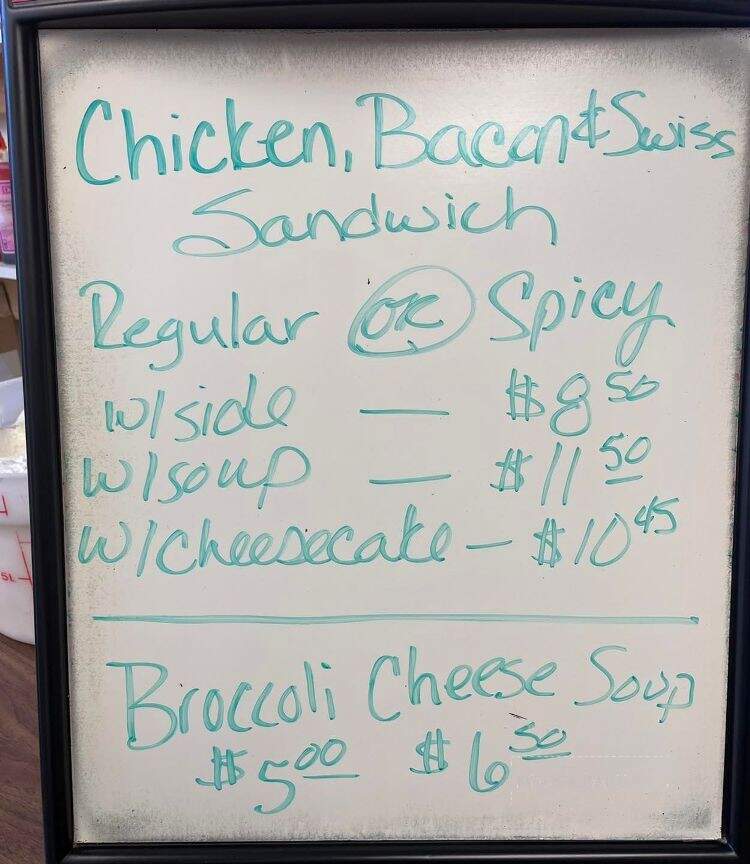 Chicken, Bacon & Swiss
Sandwich
Regular OR Spicy
w/side — $8 50
w/soup — $11 50
w/cheesecake - $10 45
Broccoli Cheese Soup
$5 00 $6 50
5L